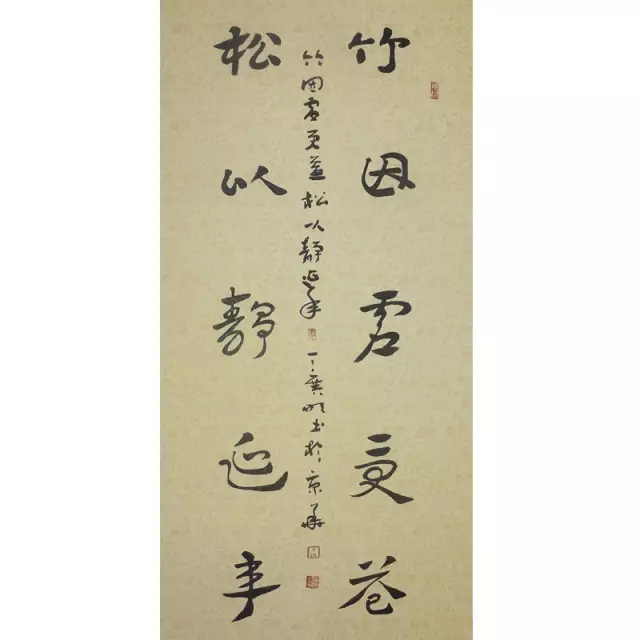 竹因虚受益
松以静延年
竹因虚受益松以静延年
丁明书於京華